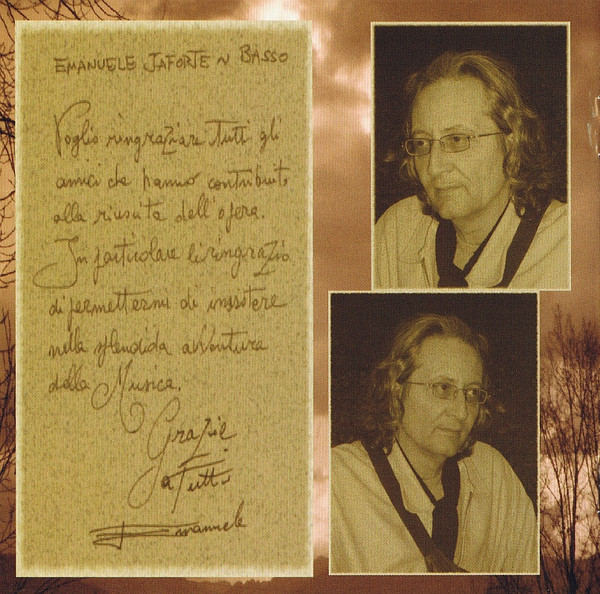 EMANUELE JAFORTE ~ BASSO
Voglio ringraziare tutti gli
amici che hanno contribuito
alla riuscita dell'opera.
In particolare li ringrazio
di permettermi di insistere
nella splendida avventura
della Musica.
Grazie
a Tutti
Emanuele